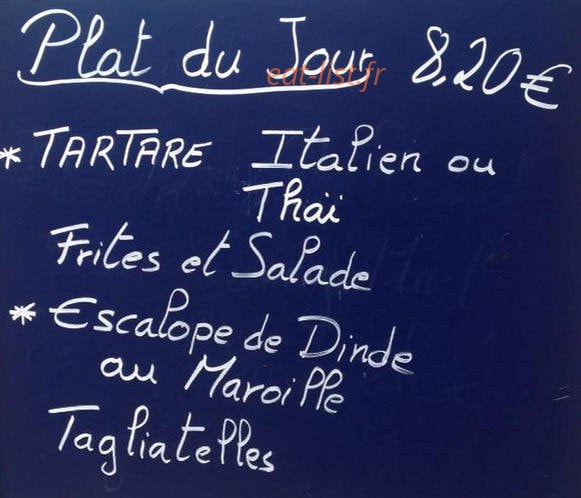 Plat du Jour 8,20€
eat-list.fr
* TARTARE Italien ou
Thaï
Frites et Salade
* Escalope de Dinde
au Maroille
Tagliatelles